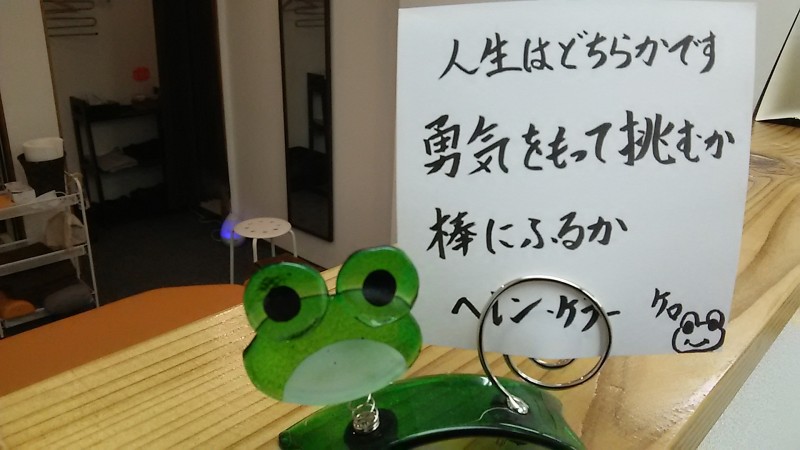 人生はどちらかです
勇気をもって挑むか
棒にふるか
ヘレン・ケラー
ケロ